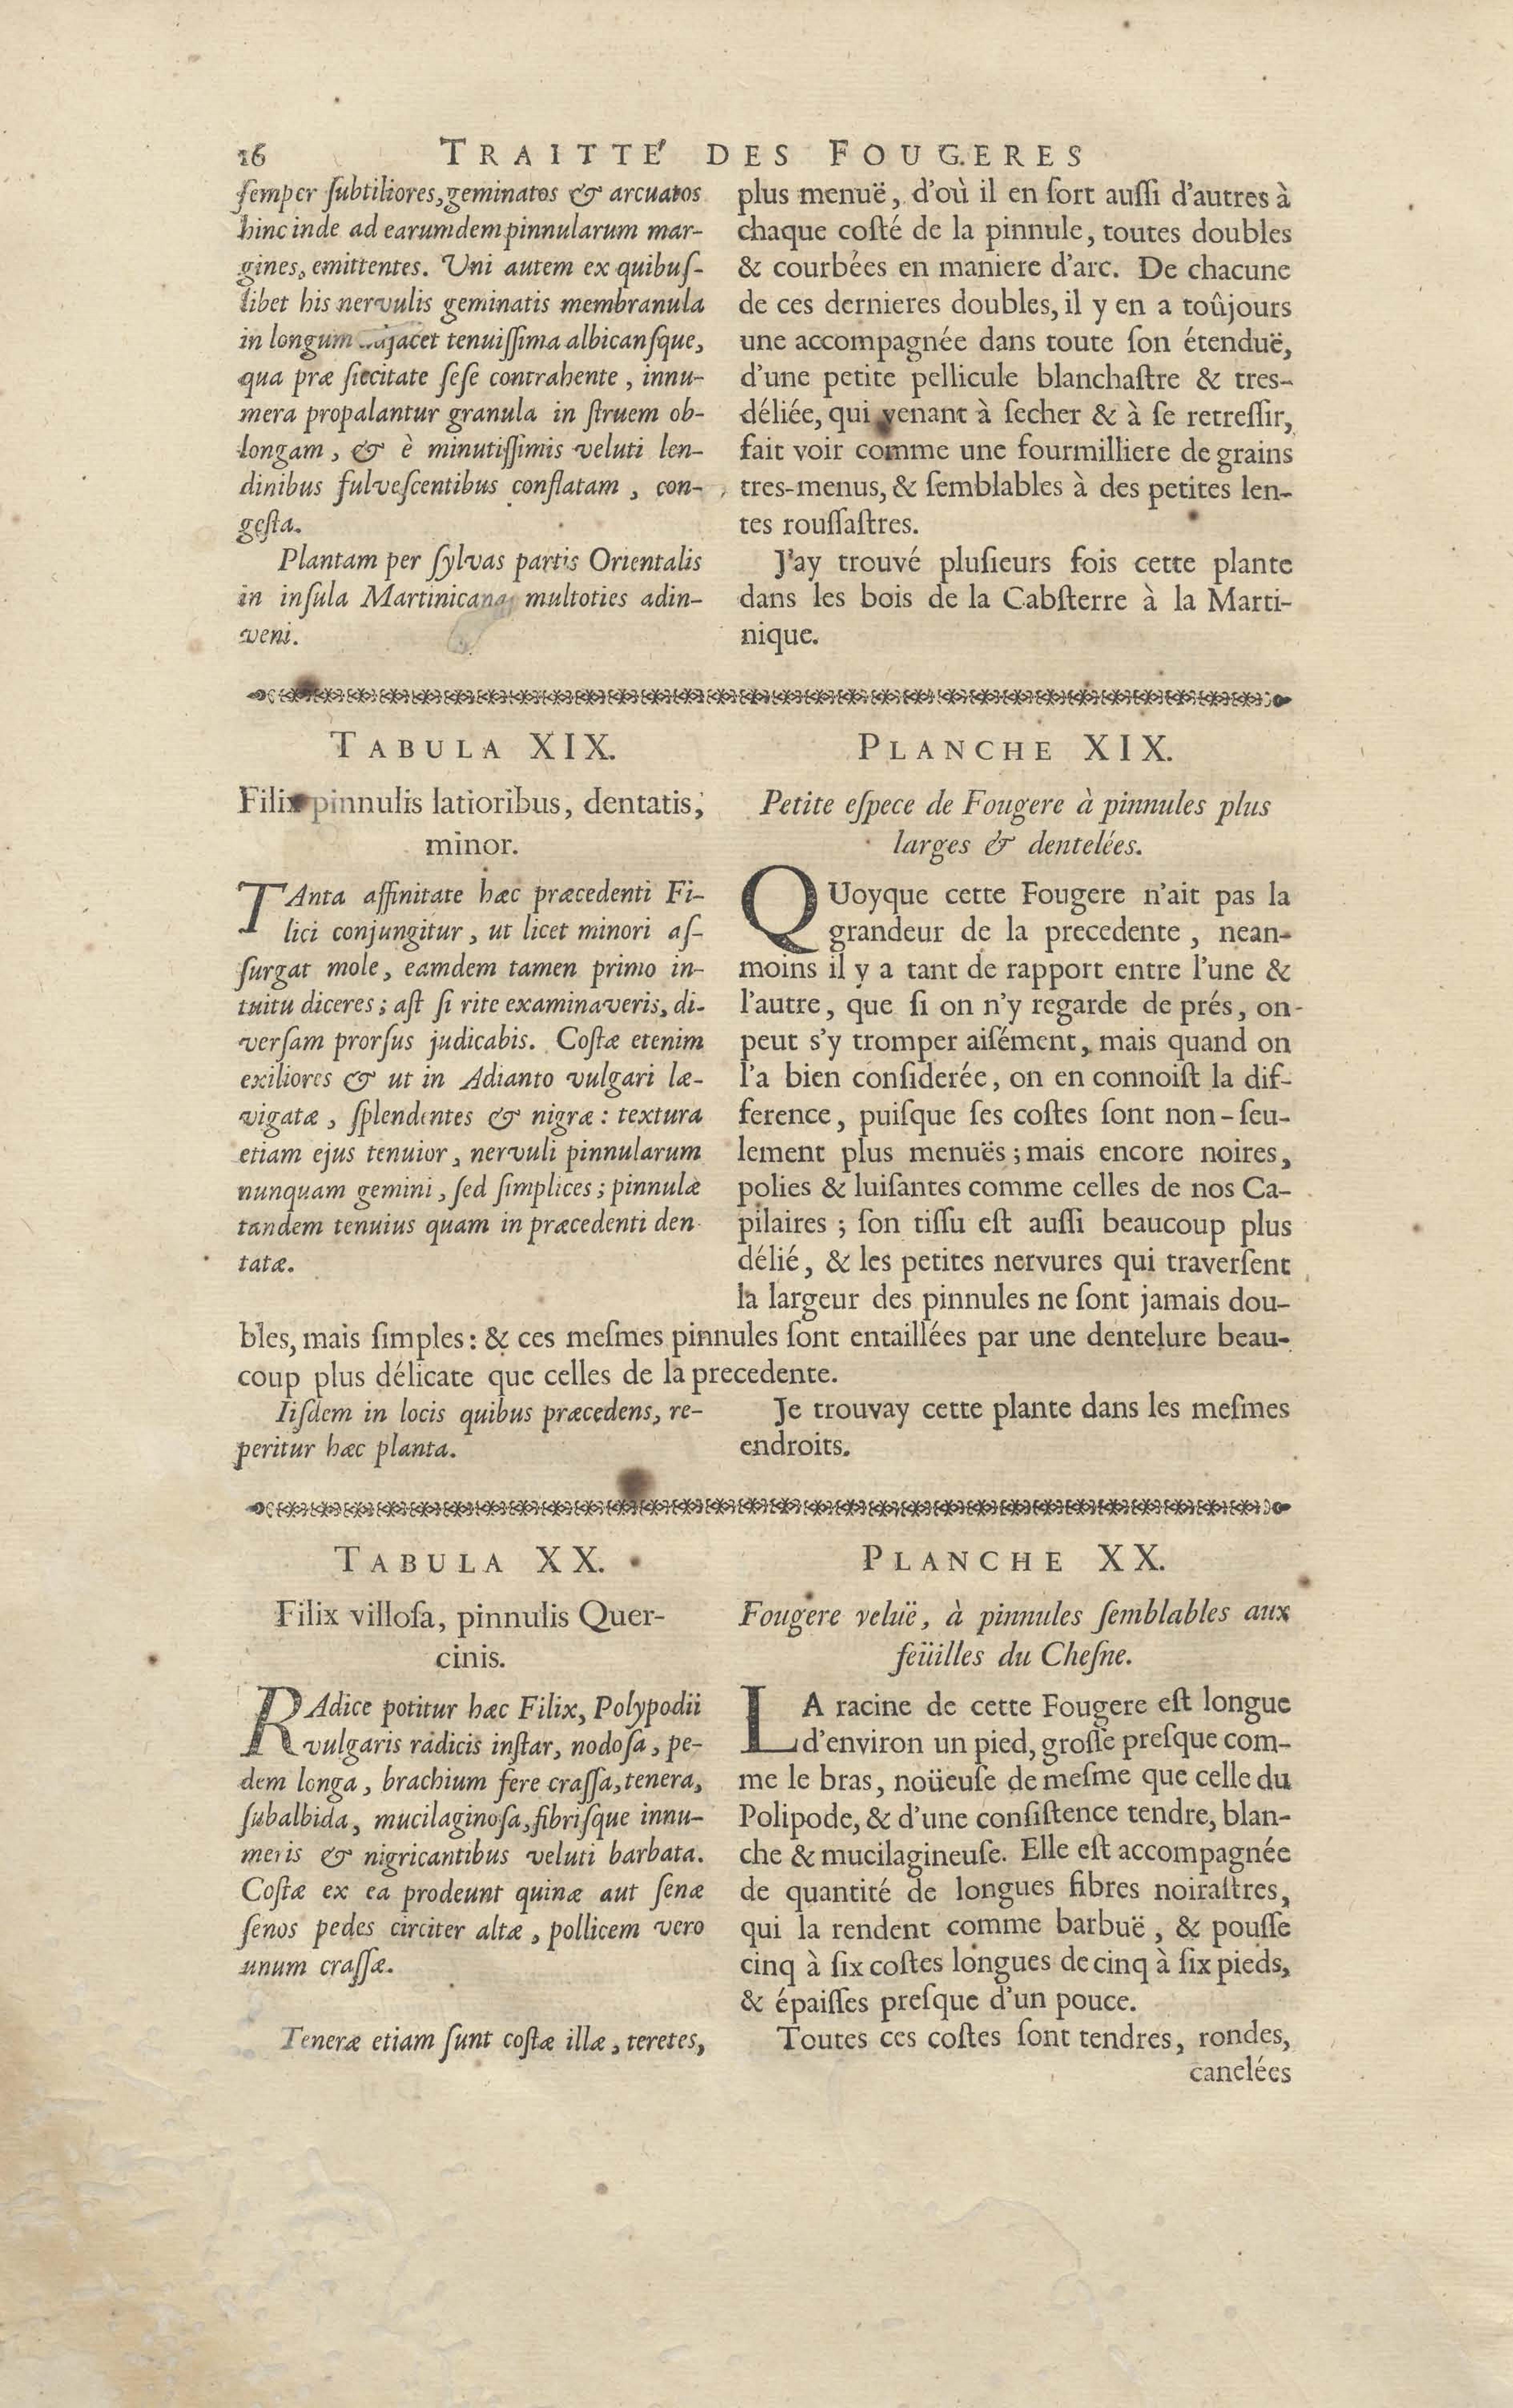 16 TRAITTE' DES FOUGERES
ſemper ſubtiliores, geminatos & arcuatos
hinc inde ad earumdem pinnularum mar-
gines, emittentes. Uni autem ex quibuſ-
libet his nervulis geminatis membranula
in longum adjacet tenuiſſima albicanſque,
qua præ ſiccitate ſeſe contrahente, innu-
mera propalantur granula in ſtruem ob-
longam, & è minutiſſimis veluti len-
dinibus fulveſcentibus conflatam, con-
geſta.
Plantam per ſylvas partis Orientalis
in inſula Martinicana, multoties adin-
veni.
plus menuë, d'où il en ſort auſſi d'autres à
chaque coſté de la pinnule, toutes doubles
& courbées en maniere d'arc. De chacune
de ces dernieres doubles, il y en a toûjours
une accompagnée dans toute ſon étenduë,
d'une petite pellicule blanchaſtre & tres-
déliée, qui venant à ſecher & à ſe retreſſir,
fait voir comme une fourmilliere de grains
tres-menus, & ſemblables à des petites len-
tes rouſſaſtres.
J'ay trouvé pluſieurs fois cette plante
dans les bois de la Cabſterre à la Marti-
nique.
TABULA XIX.
Filix pinnulis latioribus, dentatis,
minor.
TAnta affinitate hæc præcedenti Fi-
lici conjungitur, ut licet minori aſ-
ſurgat mole, eamdem tamen primo in-
tuitu diceres; aſt ſi rite examinaveris, di-
verſam prorſus judicabis. Coſtæ etenim
exiliores & ut in Adianto vulgari læ-
vigatæ, ſplendentes & nigræ: textura
etiam ejus tenuior, nervuli pinnularum
nunquam gemini, ſed ſimplices; pinnulæ
tandem tenuius quam in præcedenti den-
tatæ.
PLANCHE XIX.
Petite eſpece de Fougere à pinnules plus
larges & dentelées.
QUoyque cette Fougere n'ait pas la
grandeur de la precedente, nean-
moins il y a tant de rapport entre l'une &
l'autre, que ſi on n'y regarde de prés, on
peut s'y tromper aiſément, mais quand on
l'a bien conſiderée, on en connoiſt la dif-
ference, puiſque ſes coſtes ſont non-ſeu-
lement plus menuës; mais encore noires,
polies & luiſantes comme celles de nos Ca-
pilaires; ſon tiſſu eſt auſſi beaucoup plus
délié, & les petites nervures qui traverſent
la largeur des pinnules ne ſont jamais dou-
bles, mais ſimples: & ces meſmes pinnules ſont entaillées par une dentelure beau-
coup plus délicate que celles de la precedente.
Iiſdem in locis quibus præcedens, re-
peritur hæc planta.
Je trouvay cette plante dans les meſmes
endroits.
TABULA XX.
Filix villoſa, pinnulis Quer-
cinis.
RAdice potitur hæc Filix, Polypodii
vulgaris radicis inſtar, nodoſa, pe-
dem longa, brachium fere craſſa, tenera,
ſubalbida, mucilaginoſa, fibriſque innu-
meris & nigricantibus veluti barbata.
Coſtæ ex ea prodeunt quinæ aut ſenæ
ſenos pedes circiter altæ, pollicem vero
unum craſſæ.
Teneræ etiam ſunt coſtæ illæ, teretes,
PLANCHE XX.
Fougere veluë, à pinnules ſemblables aux
feüilles du Cheſne.
LA racine de cette Fougere eſt longue
d'environ un pied, groſſe preſque com-
me le bras, noüeuſe de meſme que celle du
Polipode, & d'une conſiſtence tendre, blan-
che & mucilagineuſe. Elle eſt accompagnée
de quantité de longues fibres noiraſtres,
qui la rendent comme barbuë, & pouſſe
cinq à ſix coſtes longues de cinq à ſix pieds,
& épaiſſes preſque d'un pouce.
Toutes ces coſtes ſont tendres, rondes,
canelées